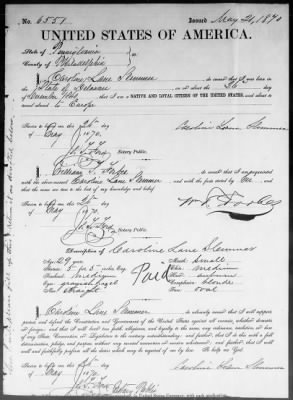 No. 6551
Issued May 21, 1870
UNITED STATES OF AMERICA.
State of Pennsylvania
County of Philadelphia
I, Caroline Lane Slemmer, do swear that I was born in the
State of Delaware on or about the
day of
that I am a NATIVE AND LOYAL CITIZEN OF THE UNITED STATES, and about to
travel abroad to Europe
Sworn to before me, this
day
of May 1870.
Caroline Lane Slemmer
Notary Public.
I, William S. Forbes, do swear that I am acquainted
with the above-named Caroline Lane Slemmer, and with the facts stated by her, and
that the same are true to the best of my knowledge and belief.
Sworn to before me, this
day
of May 1870.
Notary Public.
Description of Caroline Lane Slemmer
Age: 29 years
Mouth: small
Stature: 5 feet 5 inches, Eng.
Chin: medium
Forehead: medium
Hair: auburn
Eyes: grayish hazel
Complexion: blonde
Nose: straight
Face: oval
Paid
I, Caroline Lane Slemmer, do solemnly swear that I will support,
protect and defend the Constitution and Government of the United States against all enemies, whether domestic
or foreign, and that I will bear true faith, allegiance, and loyalty to the same, any ordinance, resolution or law
of any State Convention or Legislature to the contrary notwithstanding; and further, that I do this with a full
determination, pledge, and purpose, without any mental reservation or evasion whatsoever; and further, that I
will well and faithfully perform all the duties which may be required of me by law: So help me God.
Sworn to before me, this
day
of May 1870.
Caroline Lane Slemmer